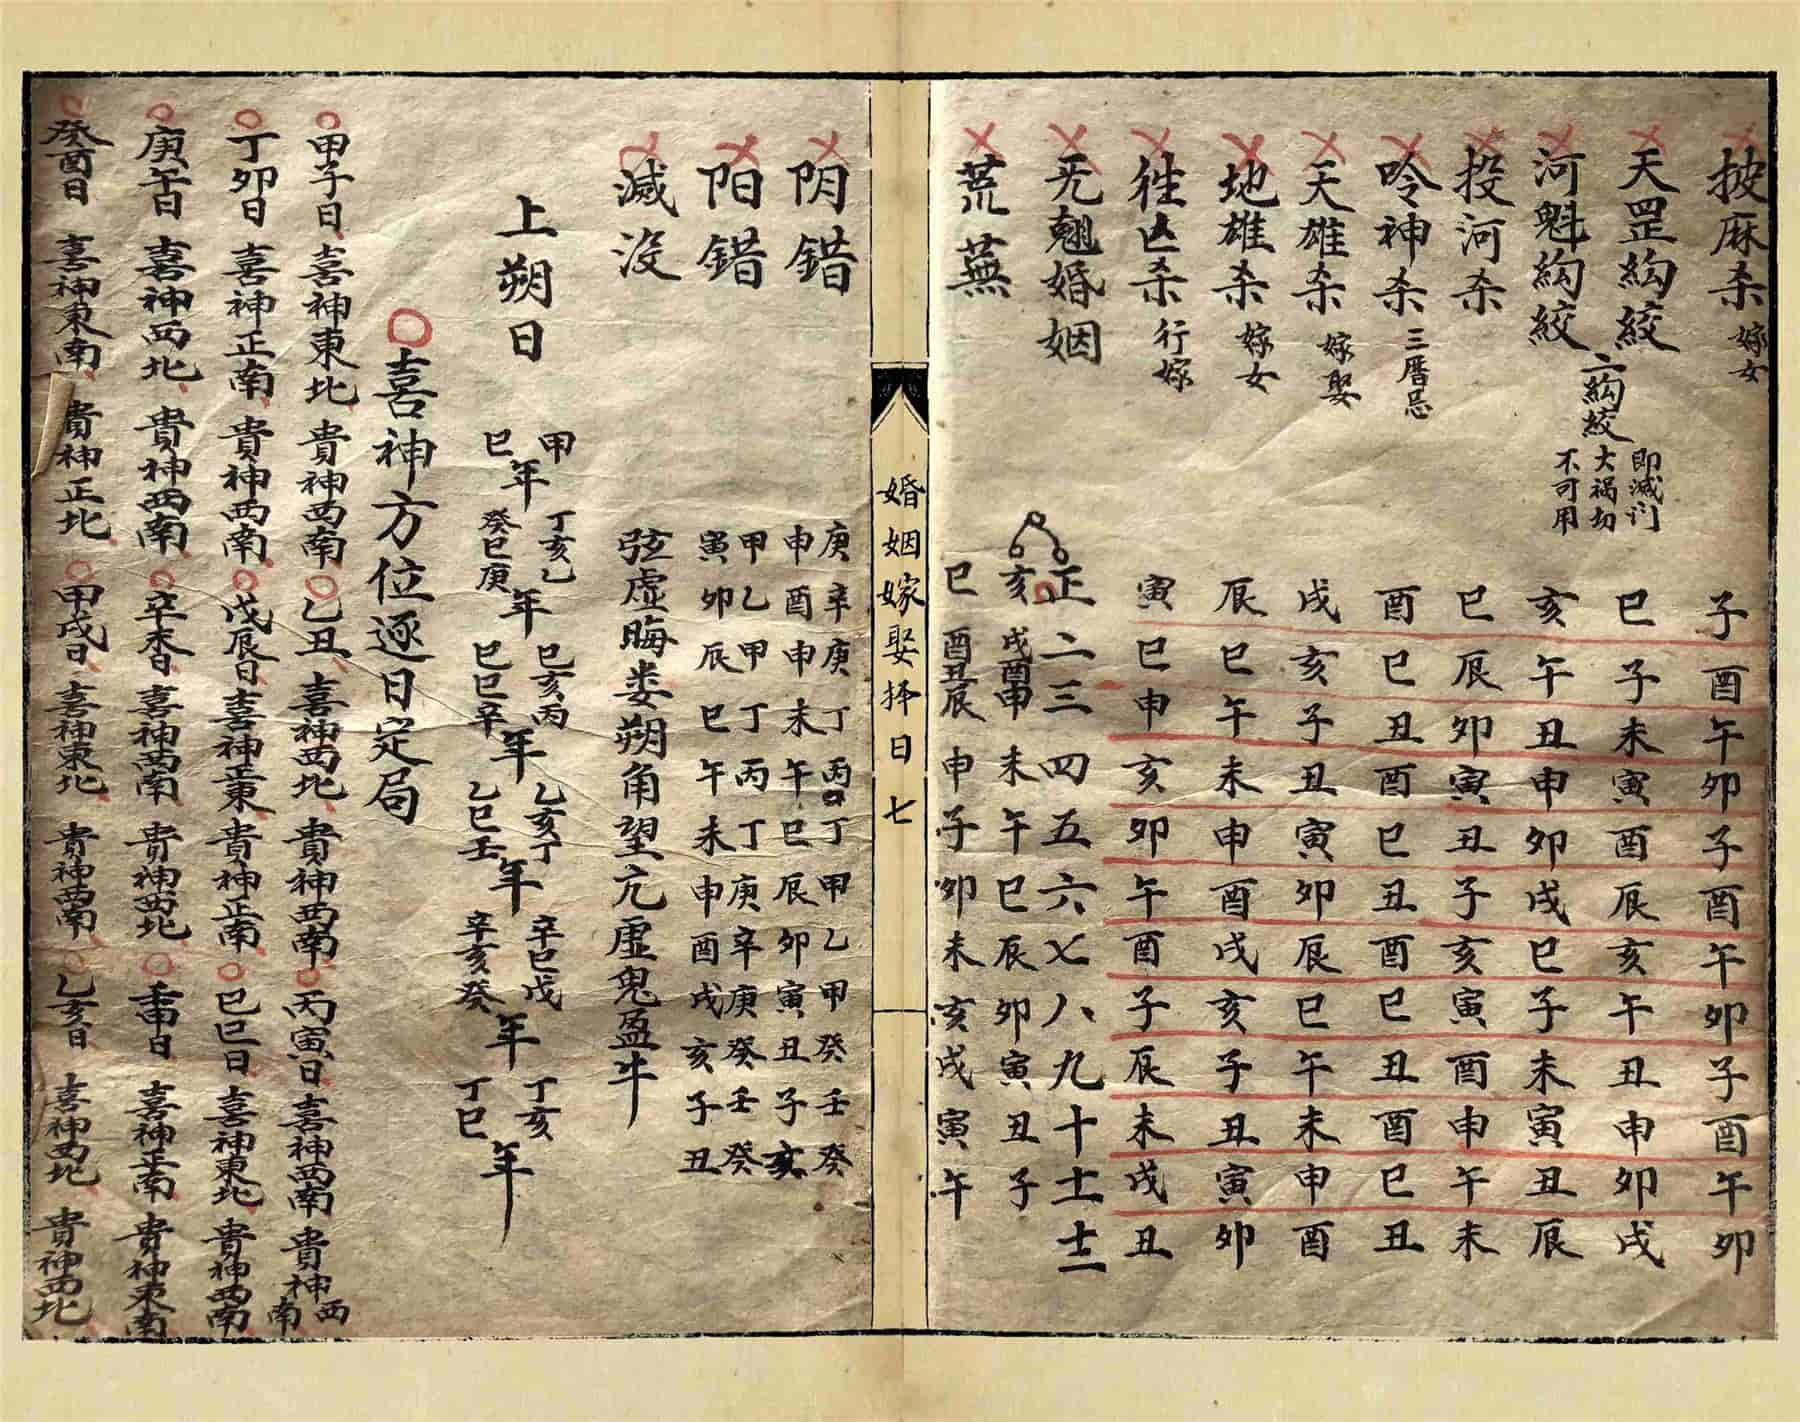 披麻杀 嫁女 子酉午卯子酉午卯子酉午卯
天罡絇絞 巳子未寅酉辰亥午丑申卯戌
二絇絞 即滅门大禍切不可用
河魁絇絞 亥午丑申卯戌巳子未寅丑辰
投河杀 巳辰卯寅丑子亥寅酉申午未
呤神杀 三曆忌 酉巳丑酉巳丑酉巳丑酉巳丑
天雄杀 嫁娶 戌亥子丑寅卯辰巳午未申酉
地雄杀 嫁女 辰巳午未申酉戌亥子丑寅卯
徃亡杀 行嫁 寅巳申亥卯午酉子辰未戌丑
无翹婚姻 正二三四五六七八九十十一十二
亥戌酉申未午巳辰卯寅丑子
荒蕪 巳酉丑辰申子卯未亥戌寅午
婚姻嫁娶择日 七
阴错 庚辛庚丁丙丁甲乙甲癸壬癸
申酉申未午巳辰卯寅丑子亥
阳错 甲乙甲丁丙丁庚辛庚癸壬癸
寅卯辰巳午未申酉戌亥子丑
滅没 弦虚晦娄朔角望亢虚鬼盈牛
上朔日 甲己年 丁亥癸巳 乙庚年 己亥己巳 丙辛年 乙亥乙巳 丁壬年 辛巳辛亥 戊癸年 丁亥丁巳年
喜神方位逐日定局
甲子日喜神東北貴神西南 乙丑喜神西北貴神西南 丙寅日喜神西南貴神西南
丁卯日喜神正南貴神西南 戊辰日喜神正東貴神正南 己巳日喜神東北貴神西南
庚午日喜神西北貴神西南 辛未日喜神西南貴神西北 壬申日喜神正南貴神東南
癸酉日喜神東南貴神正北 甲戌日喜神東北貴神西南 乙亥日喜神西北貴神西北